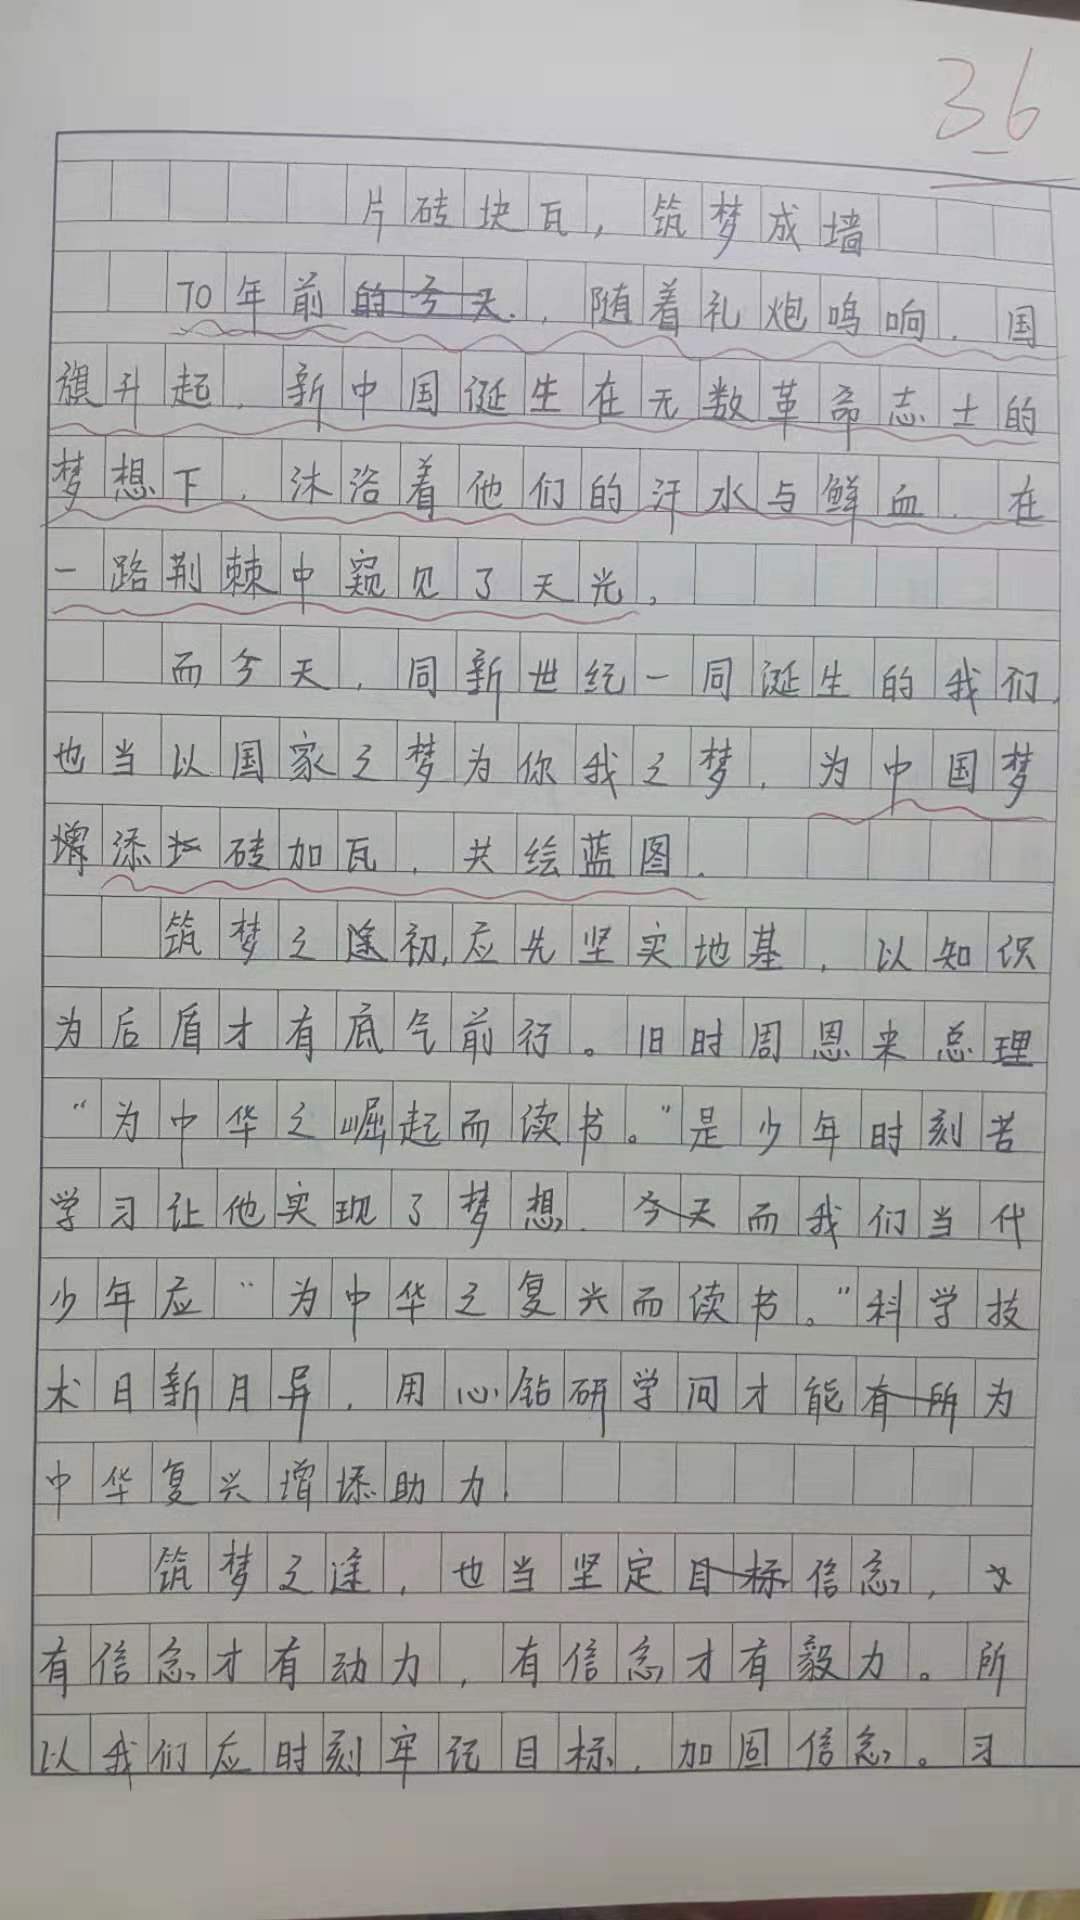 36
片砖块瓦，筑梦成墙
70年前的今天，随着礼炮鸣响，国
旗升起，新中国诞生在无数革命志士的
梦想下，沐浴着他们的汗水与鲜血，在
一路荆棘中窥见了天光，
而今天，同新世纪一同诞生的我们，
也当以国家之梦为你我之梦，为中国梦
增添块砖加瓦，共绘蓝图．
筑梦之途初，应先坚实地基，以知识
为后盾才有底气前行。旧时周恩来总理
“为中华之崛起而读书。”是少年时刻苦
学习让他实现了梦想．今天而我们当代
少年应“为中华之复兴而读书。”科学技
术日新月异，用心钻研学问才能有所为
中华复兴增添助力．
筑梦之途，也当坚定目标信念，
有信念才有动力，有信念才有毅力。所
以我们应时刻牢记目标，加固信念。习